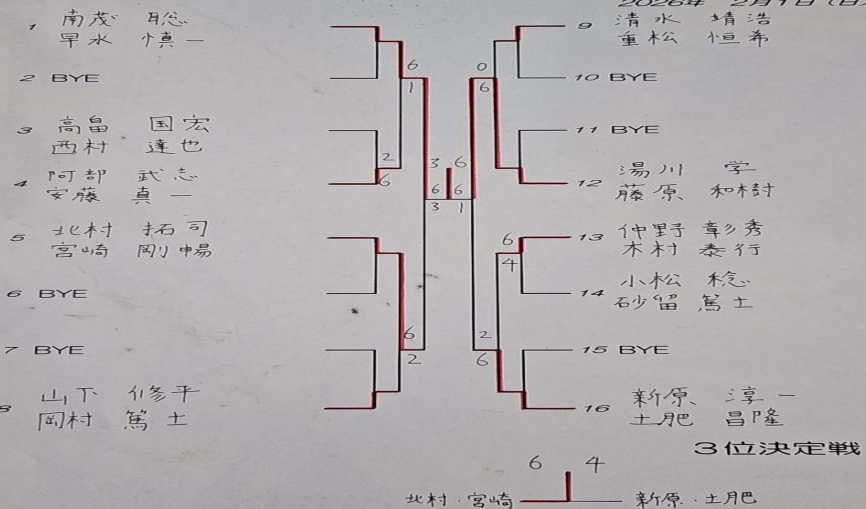 2026年 2月1日(日
1 南茂 聡
早水 慎一
2 BYE
3 高畠 国宏
西村 達也
4 阿部 武志
安藤 真一
5 北村 拓司
宮崎 剛暢
6 BYE
7 BYE
8 山下 修平
岡村 篤士
6
1
2
6
6
2
3 6
6 6
3 1
0
6
6
4
2
6
9 清水 靖浩
重松 恒希
10 BYE
11 BYE
12 湯川 学
藤原 和樹
13 仲野 彰秀
木村 泰行
14 小松 稔
砂留 篤士
15 BYE
16 新原 淳一
土肥 昌隆
3位決定戦
6 4
北村・宮崎
新原・土肥